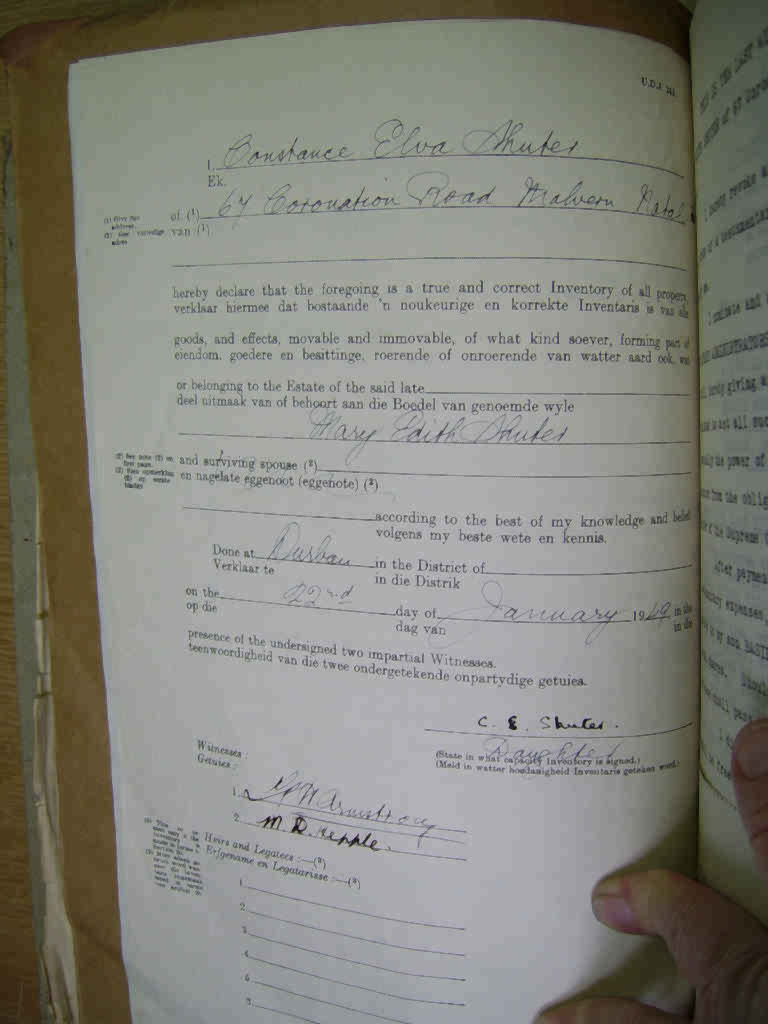 U.D.J.
I, Constance Elva Shuter
Ek,
of (1) 67 Coronation Road Malvern Natal
van (1)
(1) Give full address.
(1) Gee volledige adres
hereby declare that the foregoing is a true and correct Inventory of all property,
verklaar hiermee dat bostaande 'n noukeurige en korrekte Inventaris is van alle
goods, and effects, movable and immovable, of what kind soever, forming part of
eiendom, goedere en besittinge, roerende of onroerende van watter aard ook, wat
or belonging to the Estate of the said late
deel uitmaak van of behoort aan die Boedel van genoemde wyle
Mary Edith Shuter
and surviving spouse (2)
en nagelate eggenoot (eggenote) (2)
(2) See note (2) on first page.
(2) Sien opmerking (2) op eerste bladsy
according to the best of my knowledge and belief
volgens my beste wete en kennis.
Done at Durban in the District of
Verklaar te in die Distrik
on the 22nd day of January 1949 in the
op die dag van in die
presence of the undersigned two impartial Witnesses.
teenwoordigheid van die twee ondergetekende onpartydige getuies.
C. E. Shuter.
Daughter
(State in what capacity Inventory is signed.)
(Meld in watter hoedanigheid Inventaris geteken word.)
Witnesses :
Getuies :
1. Armstrong
2. M. D. Hepple.
Heirs and Legatees :—(3)
Erfgename en Legatarisse :—(3)
1.
2.
3.
4.
5.
THIS IS THE LAST
I hereby revoke
of a testamentary
ADMINISTRATORS
hereby giving
the power of
from the oblig
the Supreme
After paymen
expenses,
my son BASIL